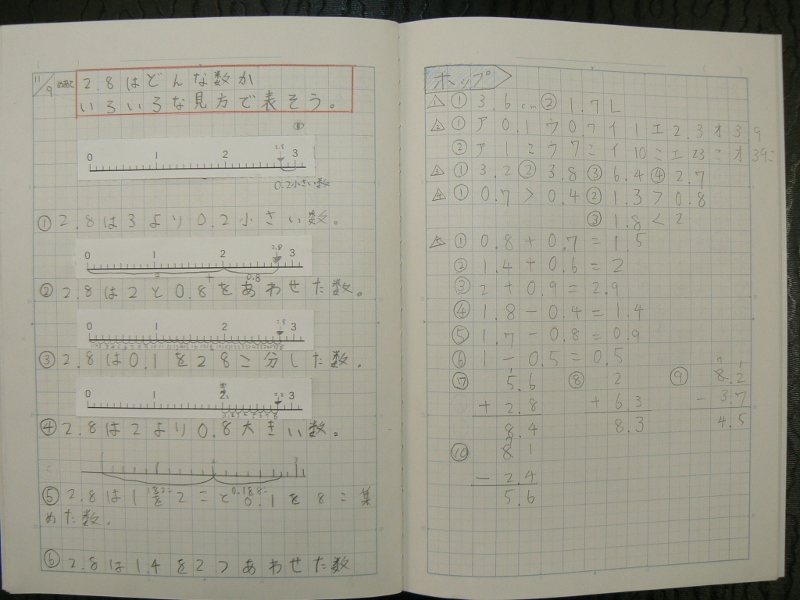 11/9
めあて
2.8はどんな数か
いろいろな見方で表そう。
0 1 2 2.8 3
0.2小さい数
①2.8は3より0.2小さい数。
0 1 2 2.8 3
0.8
②2.8は2と0.8をあわせた数。
0 1 2 2.8 3
③2.8は0.1を28こ分した数。
0 1 2 3
④2.8は2より0.8大きい数。
⑤2.8は1を2こと0.1を8こ集
めた数。
⑥2.8は1.4を2つあわせた数
ホップ
① 3.6cm ② 1.7L
① ア 0.1 ウ 0.7 イ 1 エ 2.3 オ 3.9
② ア 1こ ウ 7こ イ 10こ エ 23こ オ 39こ
① 3.2 ② 3.8 ③ 6.4 ④ 2.7
① 0.7 > 0.4 ② 1.3 > 0.8
③ 1.8 < 2
① 0.8 + 0.7 = 1.5
② 1.4 + 0.6 = 2
③ 2 + 0.9 = 2.9
④ 1.8 - 0.4 = 1.4
⑤ 1.7 - 0.8 = 0.9
⑥ 1 - 0.5 = 0.5
⑦ 5.6 ⑧ 2 ⑨ 8.2
+ 2.8 + 6.3 - 3.7
8.4 8.3 4.5
⑩ 8
- 2.4
5.6